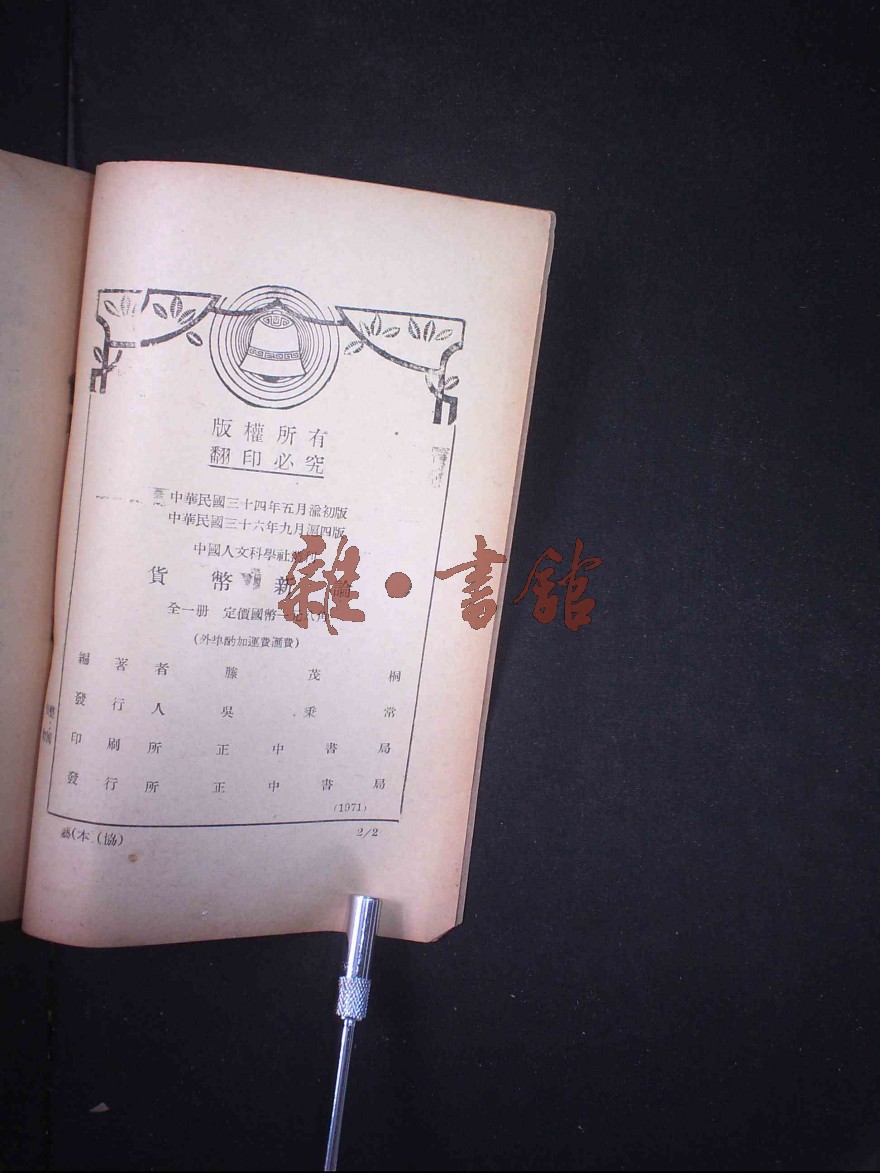 版權所有
翻印必究
中華民國三十四年五月渝初版
中華民國三十六年九月滬四版
中國人文科學社叢刊
貨幣新論
全一册 定價國幣一元六角
(外埠酌加運費滙費)
編著者 滕茂桐
發行人 吳秉常
印刷所 正中書局
發行所 正中書局
(1971)
(協) 2/2
雜·書館